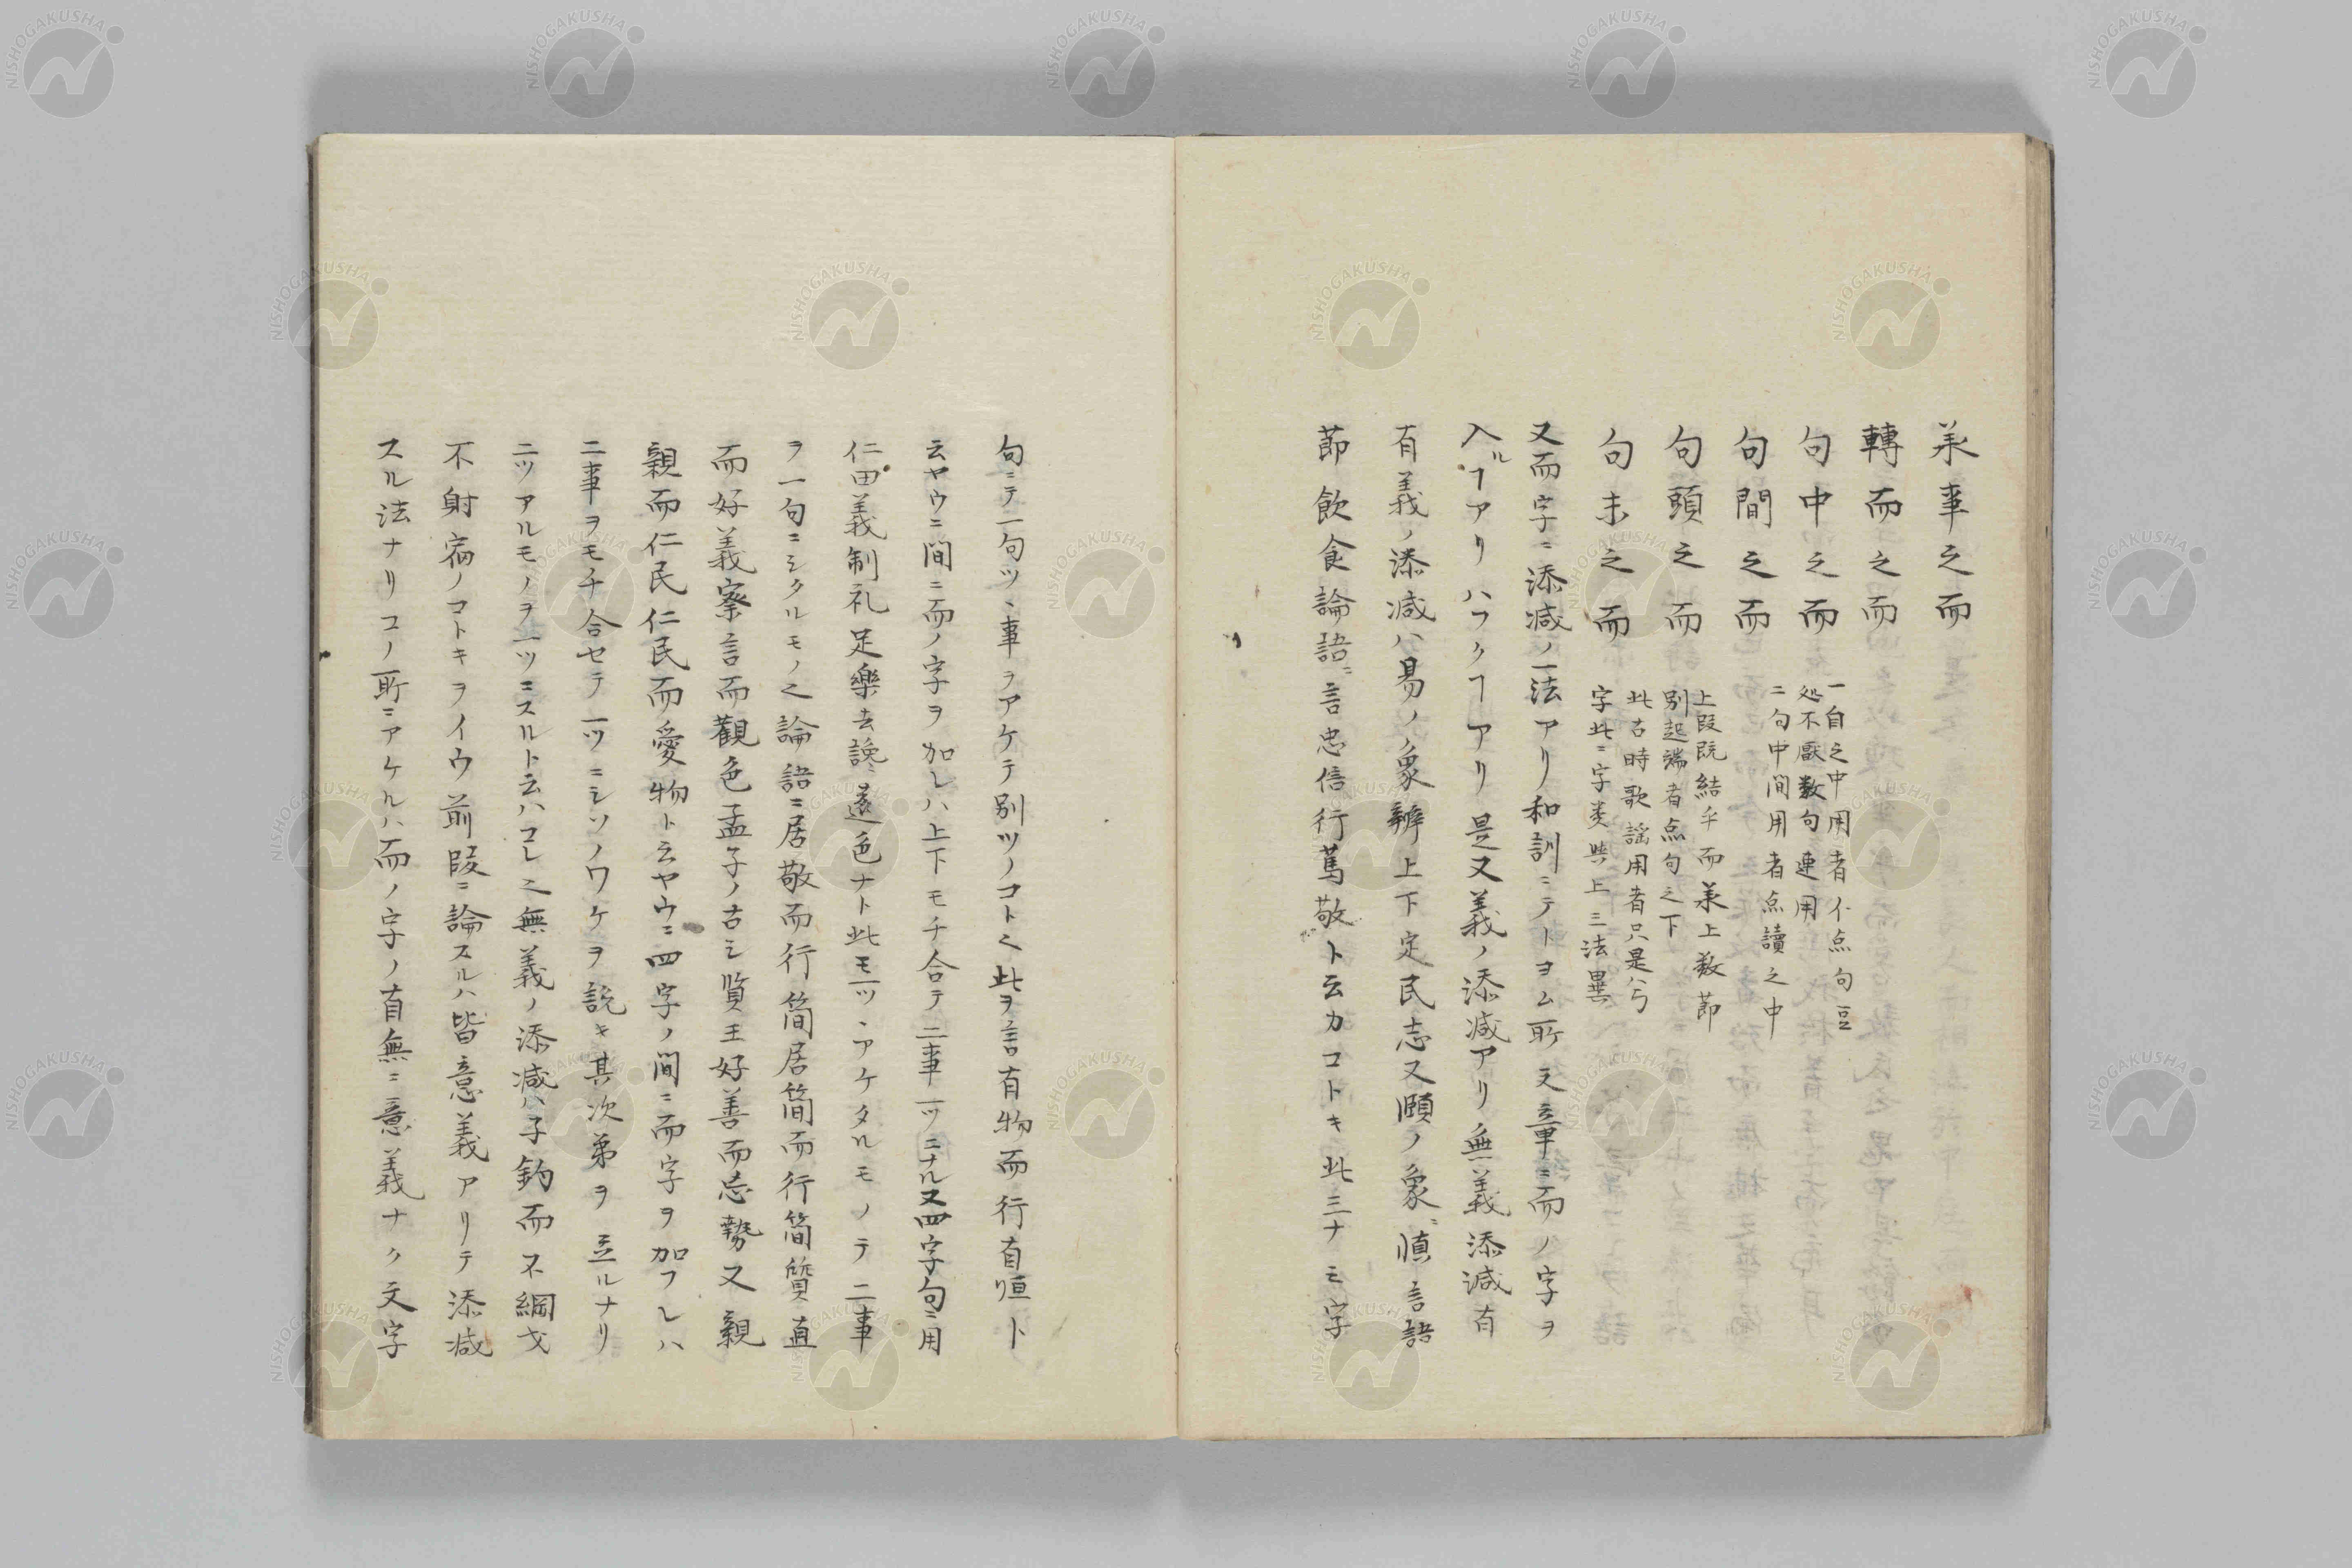 兼事之而
轉而之而
句中之而
一句之中用者不点句豆
処不厭数句連用
句間之而
二句中间用者点讀之中
句頭之而
上段既結乎而兼上数節
別起端者点句之下
句末之而
此古時歌謡用者只是八丂
字此ニ字类与上三法異
又而字ニ添减ノ一法アリ和訓ニテトヨム所文章ニ而ノ字ヲ
入ルヿアリハフクヿアリ是又義ノ添减アリ無義添减有
有義ノ添减ハ易ノ象辨上下定民志又頤ノ象ニ慎言語
節飲食論語ニ言忠信行篤敬ト云カコトキ此三ナ三字
句ニテ一句ツヽ事ヲアケテ別ツノコト也此ヲ言有物而行有恒ト
云ヤウニ間ニ而ノ字ヲ加レハ上下モチ合テ二事一ツニナル又四字句ニ用
仁田義制礼足樂去讒遠色ナト此モ一ツヽアケタルモノテ二事
ヲ一句ニシタルモノ也論語ニ居敬而行简居简而行简質直
而好義察言而觀色孟子ノ古シ賢王好善而忘勢又親
親而仁民仁民而愛物ト云ヤウニ四字ノ間ニ而字ヲ加フレハ
二事ヲモチ合セテ一ツニシソノワケヲ説キ其次弟ヲ立ルナリ
二ツアルモノヲ一ツニスルト云ハコレ也無義ノ添减ハ子釣而不綱弋
不射宿ノコトキヲイウ前段ニ論スルハ皆意義アリテ添减
スル法ナリコノ所ニアケルハ而ノ字ノ有無ニ意義ナク文字
NISHOGAKUSHA